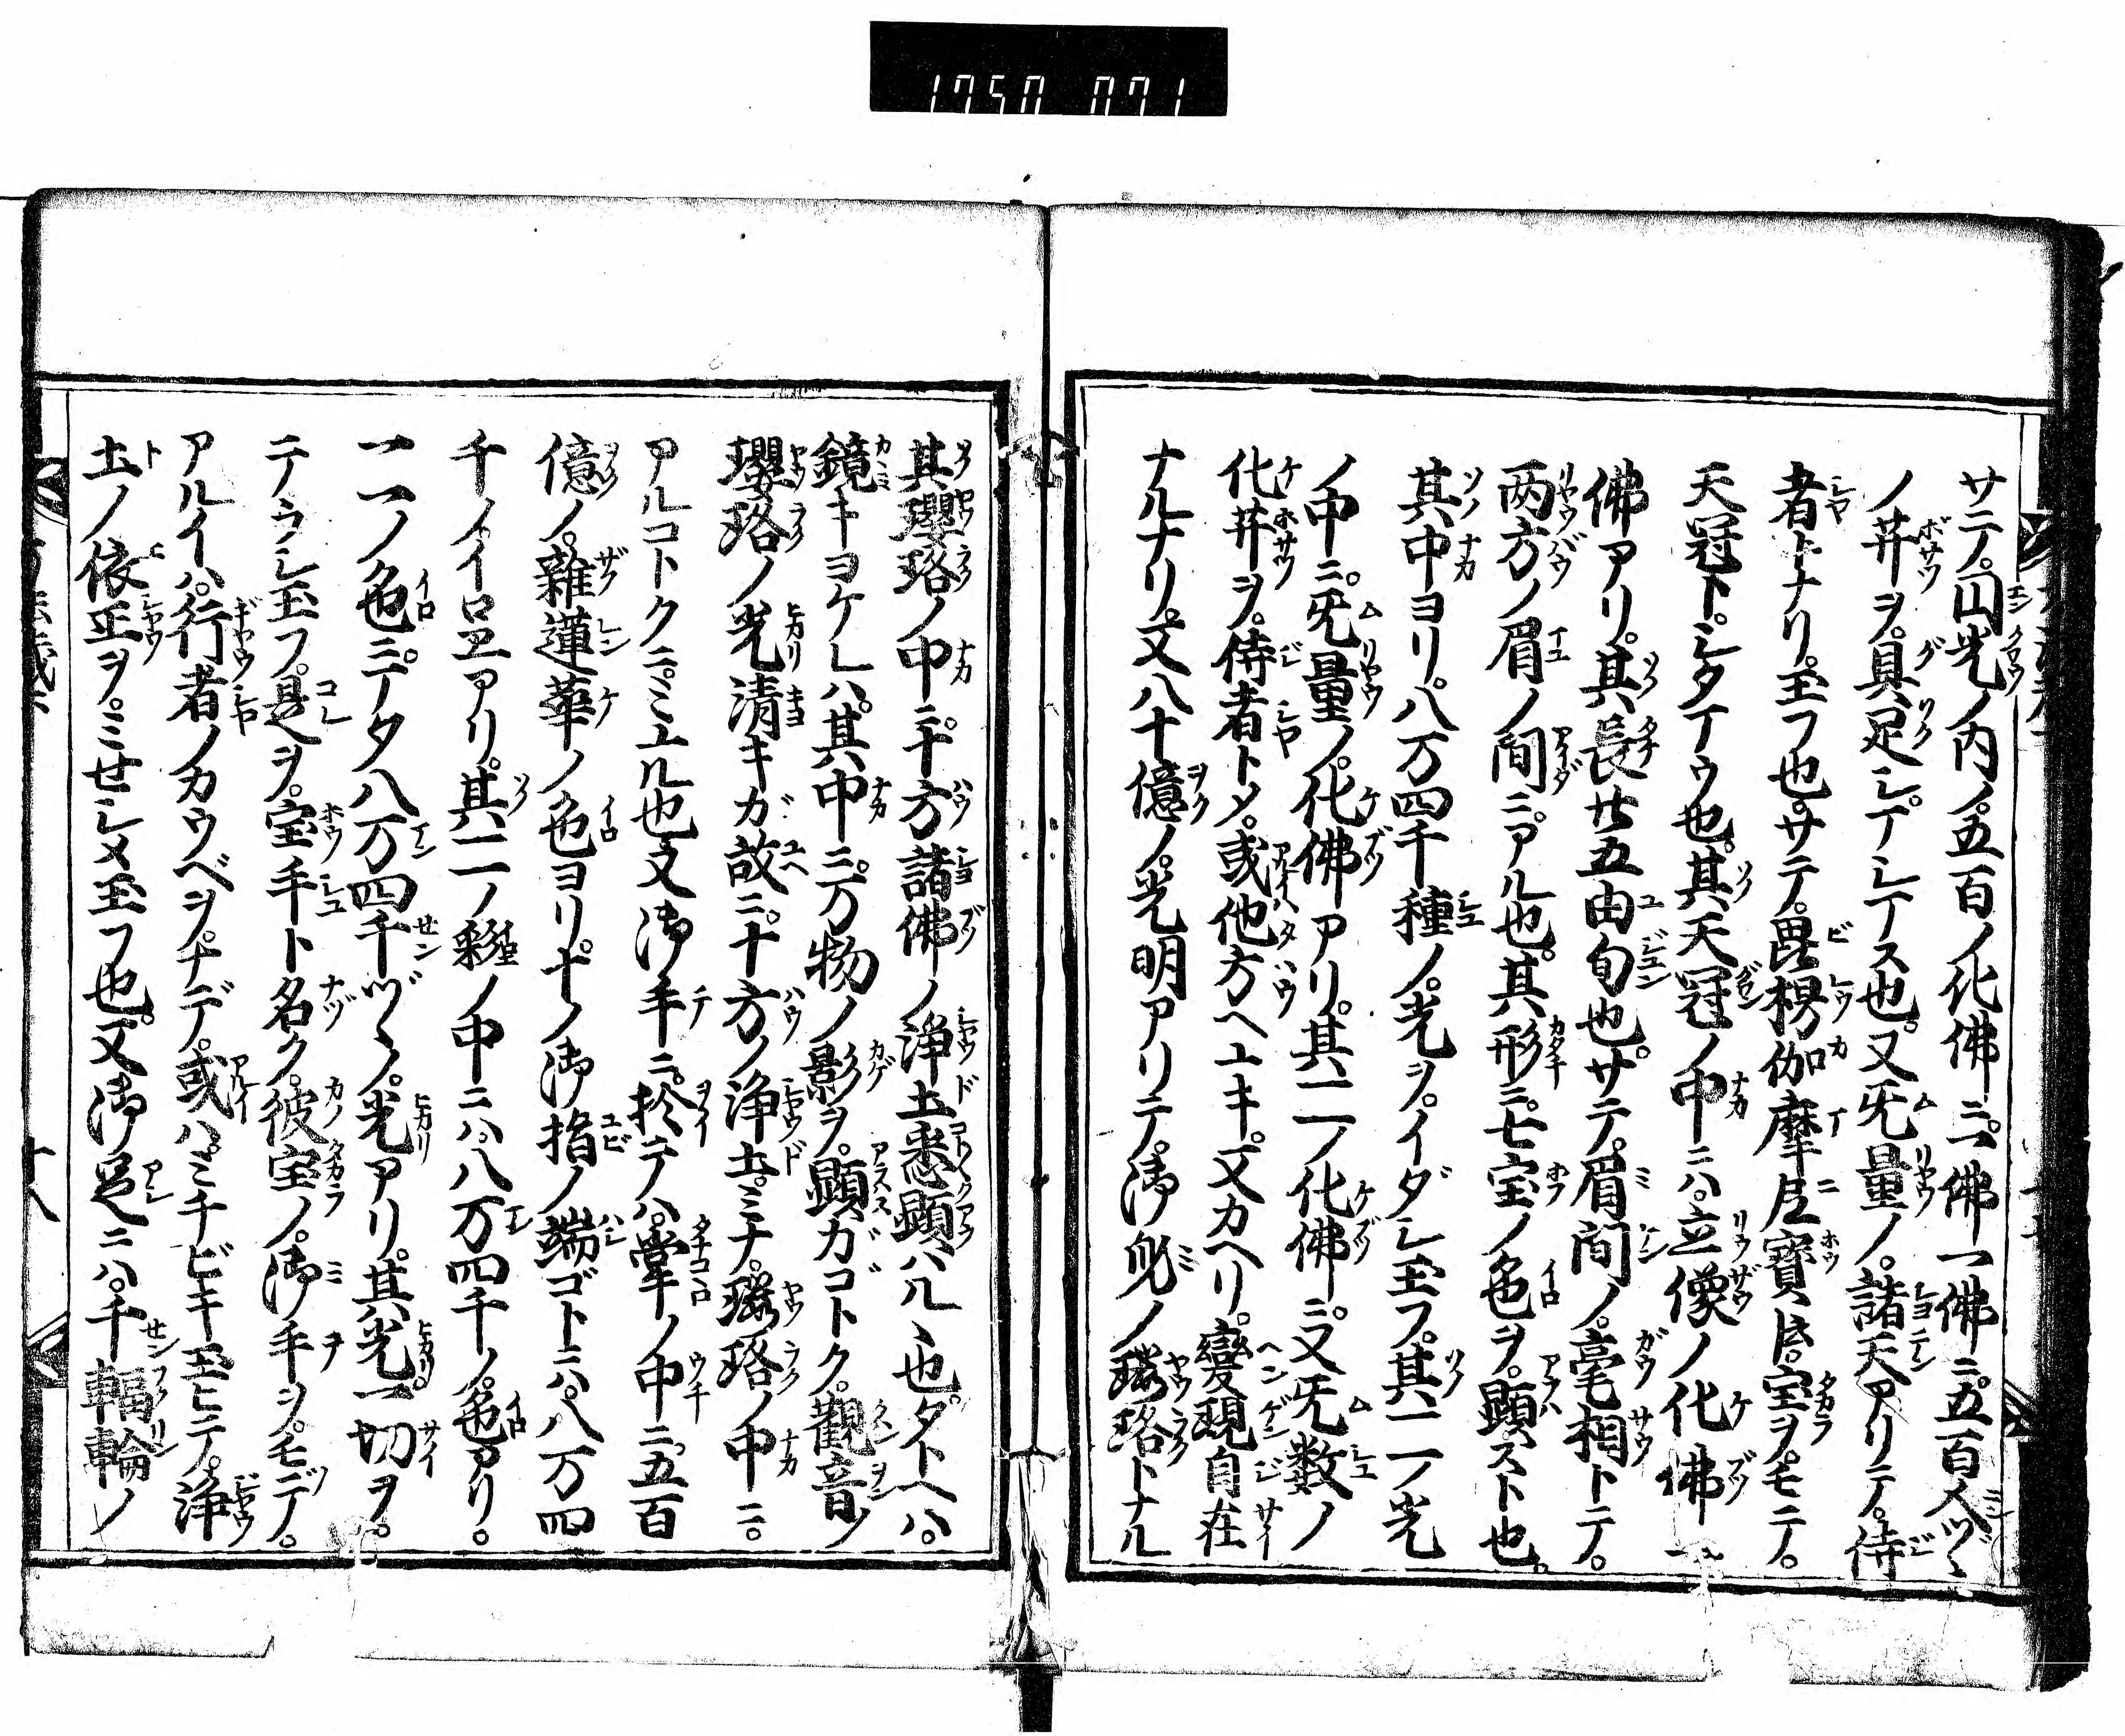 1750 071
サテ。円光ノ内ノ。五百ノ化佛ニ。一佛一佛ニ。五百人ヅヽ
ノ菩薩ヲ。具足シ。テイシテス也。又旡量ノ。諸天アリテ。侍
者トナリ。玉フ也。サテ。毘楞伽摩尼寳ト。宝ヲ。モテ。
天冠ト。シタマウ也。其天冠ノ中ニハ。立像ノ化佛一
佛アリ。其長廿五由旬也。サテ。眉間ノ。毫相トテ。
両方ノ眉ノ間ニアル也。其形ニ。七宝ノ色ヲ。顕スト也。
其中ヨリ。八万四千種ノ。光ヲ。イダシ玉フ。其一一ノ光
ノ中ニ。旡量ノ。化佛アリ。其一一ノ化佛ニ。又旡数ノ
化菩薩ヲ。侍者トメ。或他方ヘユキ。又カヘリ。變現自在
ナルナリ。又八十億ノ。光明アリテ。御身ノ瓔珞トナル
其瓔珞ノ中ニ。十方諸佛ノ浄土悉顕ハルヽ也。タトヘハ。
鏡キヨケレハ。其中ニ。万物ノ影ヲ。顕スガゴトク。觀音ノ
瓔珞ノ光清キガ故ニ。十方ノ浄土。ミナ。瓔珞ノ中ニ。
アルコトクニ。ミユル也又御手ニ。於テハ。掌ノ中ニ。五百
億ノ。雜蓮華ノ色ヨリ。十ノ御指ノ端ゴトニハ。八万四
千ノイロヱアリ。其一一ノ彩ノ中ニハ。八万四千ノ。色アリ。
一一ノ色ニ。マタ八万四千ヅヽノ。光アリ。其光。一切ヲ。
テラシ玉フ。是ヲ。宝手ト名ク。彼宝ノ。御手ヲ。モテ。
アルイハ。行者ノカウベヲ。ナデ。或ハ。ミチビキ玉ヒテ。浄
土ノ依正ヲ。ミセシメ玉フ也。又御足ニハ。千輻輪ノ